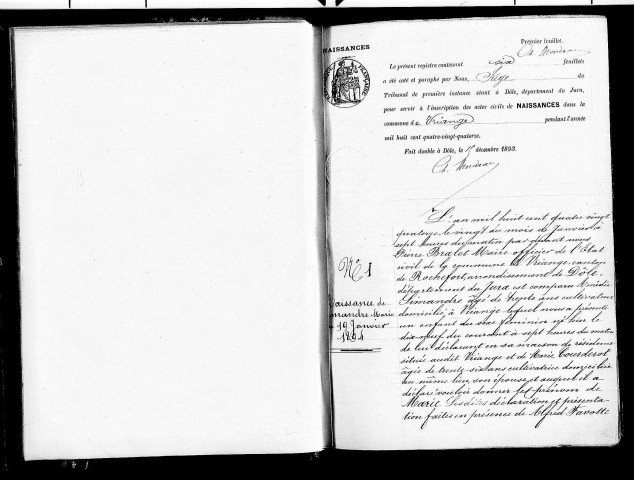 NAISSANCES
Premier feuillet.
Le présent registre contenant six feuillets
a été coté et paraphé par Nous, Juge du
Tribunal de première instance séant à Dôle, département du Jura,
pour servir à l'inscription des actes civils de NAISSANCES dans la
commune de Vriange pendant l'année
mil huit cent quatre-vingt-quatorze.
Fait double à Dôle, le décembre 1893.
L'an mil huit cent quatre vingt
quatorze, le vingt du mois de Janvier à
sept heures du matin par devant nous
Pierre Bralet Maire officier de l'Etat
civil de la commune de Vriange, canton
de Rochefort, arrondissement de Dôle,
département du Jura est comparu Amédée
Simandre âgé de trente ans cultivateur
domicilié à Vriange lequel nous a présenté
un enfant du sexe féminin né hier le
dix-neuf du courant à sept heures du matin
de lui déclarant en sa maison de résidence
située audit Vriange et de Marie Courderot
âgée de trente-six ans cultivatrice domiciliée
au même lieu, son épouse, et auquel il a
déclaré vouloir donner les prénom de
Marie. Lesdites déclaration et présenta-
tion faites en présence de Alfred Favotte
N° 1
Naissance de
Simandre Marie
19 Janvier
1894